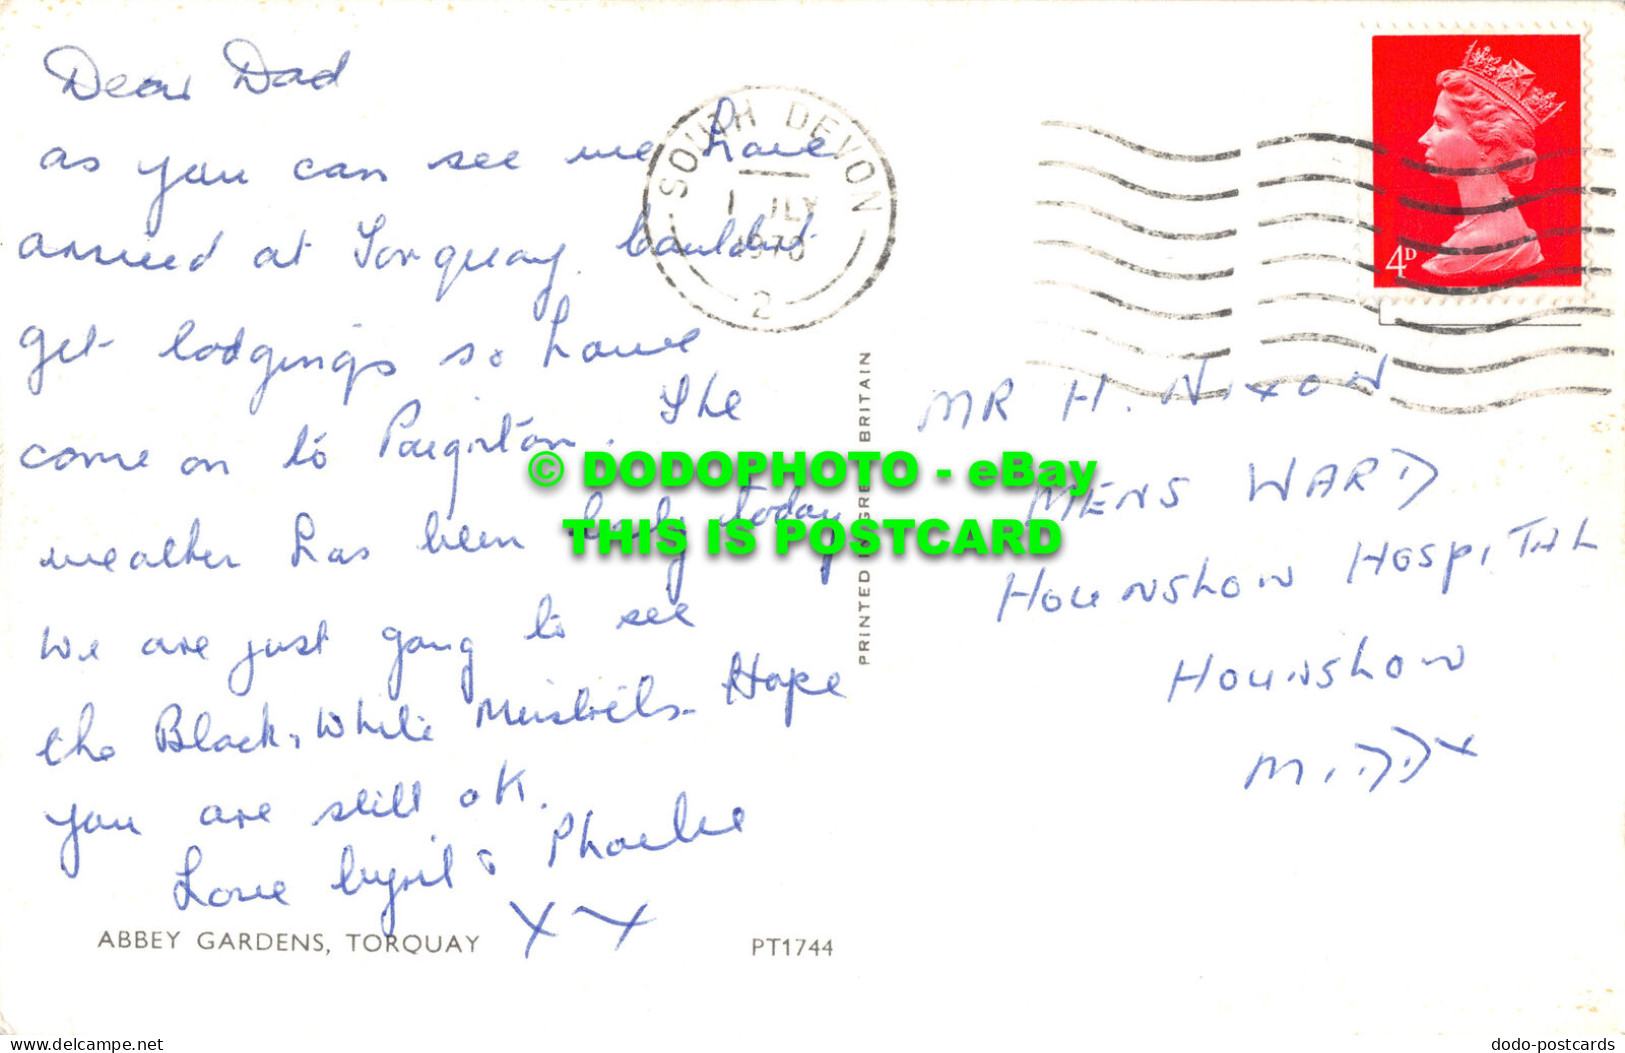 Dear Dad
as you can see we have
arrived at Torquay. Couldnt
get lodgings so have
come on to Paignton. The
weather has been lovely today
We are just going to see
the Black, White Minstrels. Hope
you are still OK.
Love Cyril & Phoebe
X X
ABBEY GARDENS, TORQUAY
PT1744
SOUTH DEVON
1 JLY
1970
2
PRINTED IN GREAT BRITAIN
4D
MR H. NIXON
MENS WARD
HOUNSLOW HOSPITAL
HOUNSLOW
MIDDX
© DODOPHOTO - eBay
THIS IS POSTCARD
delcampe.net
dodo-postcards